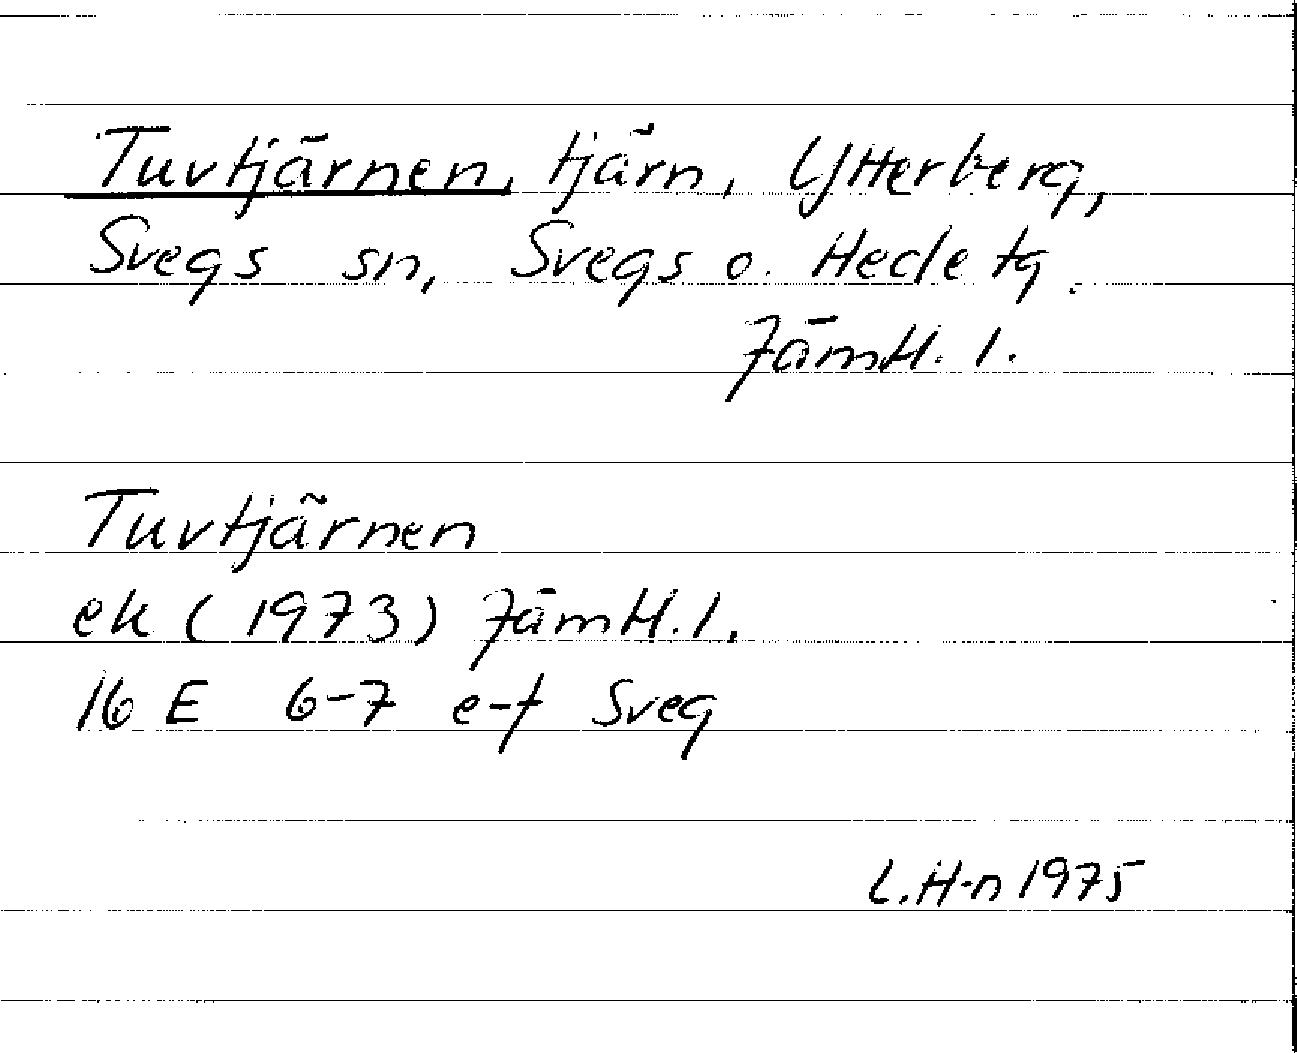 Tuvtjärnen, tjärn, Ytterberg,
Svegs sn, Svegs o. Hede tg.
Jämtl. l.
Tuvtjärnen
ek (1973) Jämtl. l.
16 E 6-7 e-f Sveg
L.H-n 1975